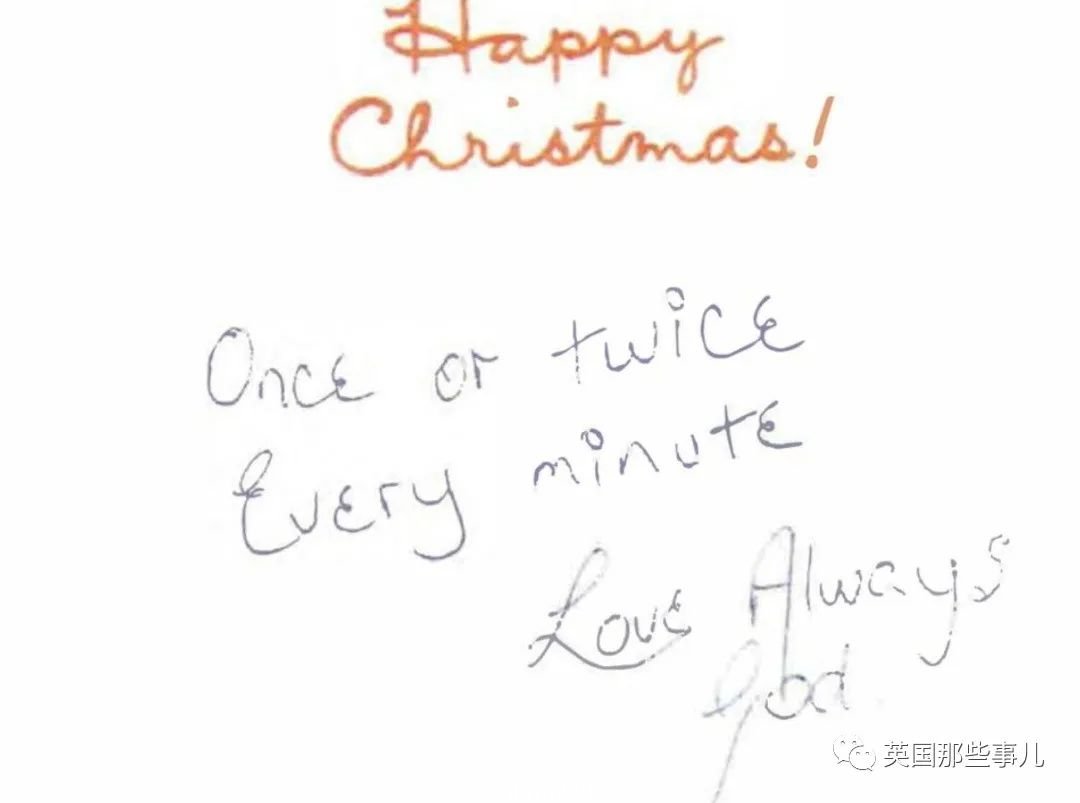 Happy
Christmas!
Once or twice
Every minute
Love Always
God.
英国那些事儿